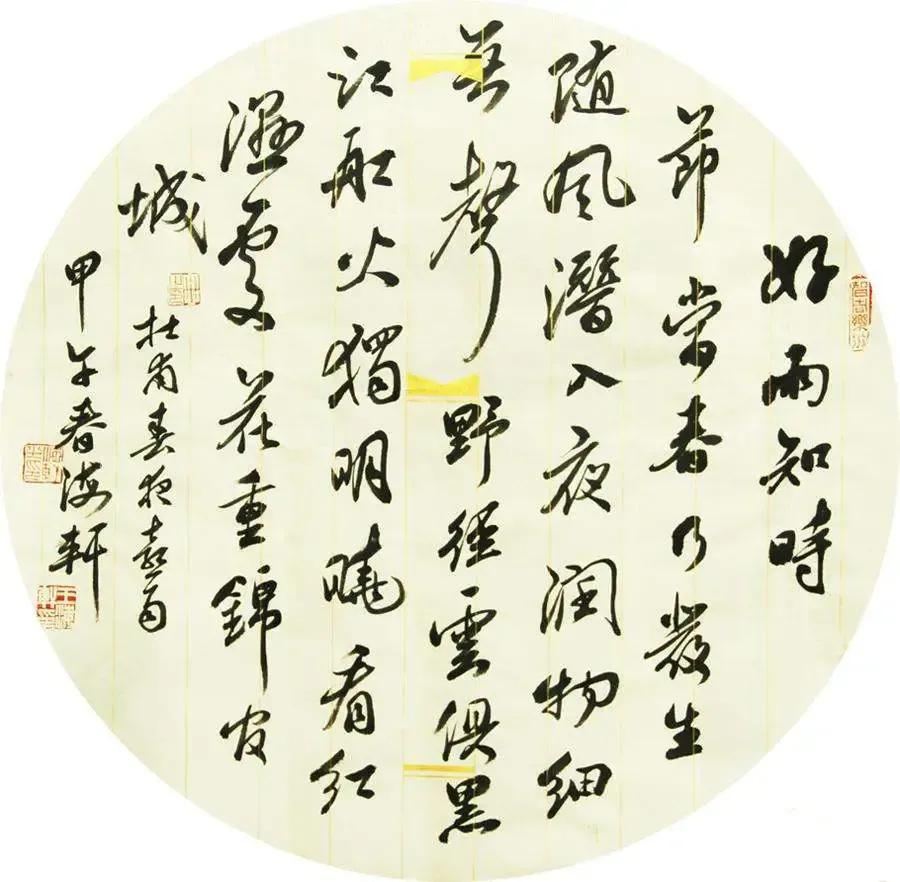 好雨知時
節當春乃發生
随风潛入夜润物细
無聲野徑雲俱黑
江船火獨明曉看红
濕處花重錦官
城
杜甫春夜喜雨
甲午春海軒